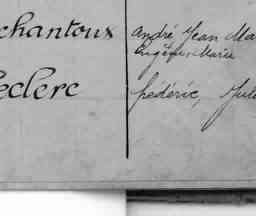 chantoux André Jean Ma
Eugène Marie
eclerc Frédéric, Jule